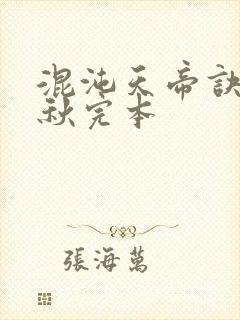 混沌天帝訣
秋完本
張海萬